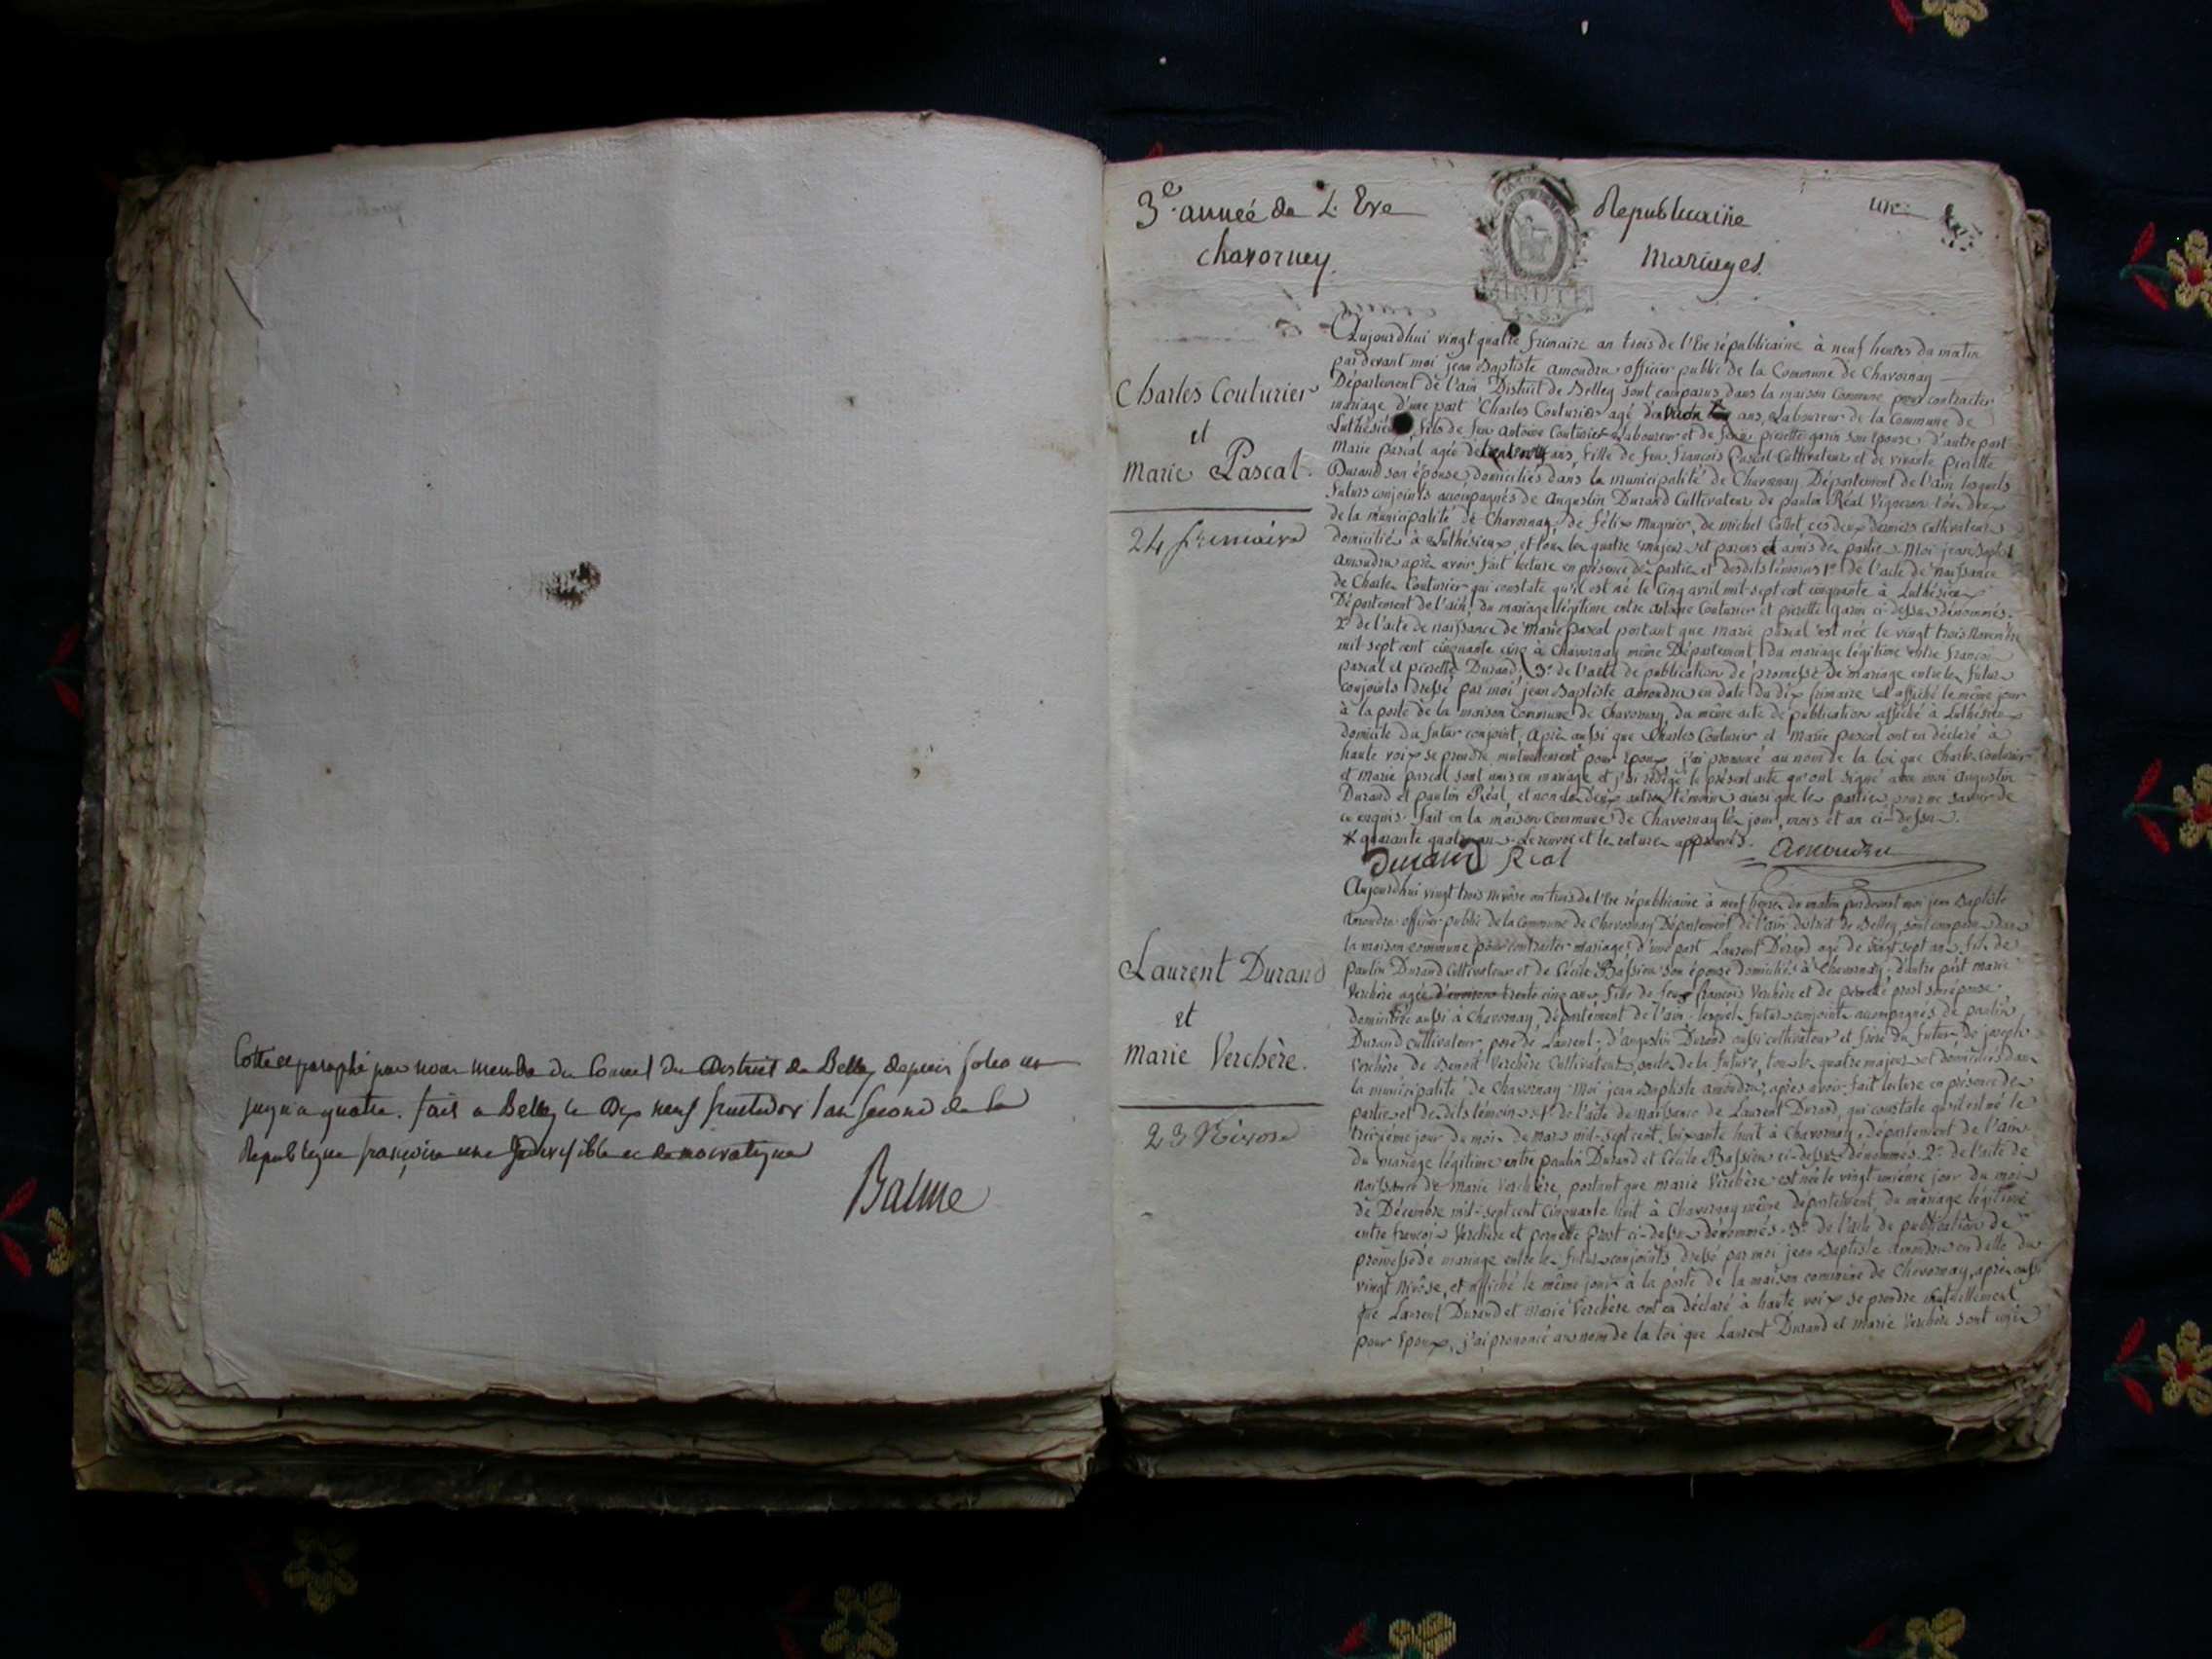 Cotté et paraphé par nous membre du Conseil du District de Belley depuis folio un
jusqu'a quatre. fait a Belley le Dix neuf fructidor l'an second de la
Republique françoise une indivisible et democratique
Balme
3e. année de L'Ere Republicaine
chavornay. Mariages.
MINUTE
Charles Couturier
et
Marie Pascal.
24 frimaire
Aujourdhui vingt quatre frimaire an trois de l'Ere républicaine à neuf heures du matin
par devant moi jean Baptiste amoudru officier public de la Commune de Chavornay
Département de l'ain District de Belley sont comparus dans la maison Commune pour contracter
mariage d'une part Charles Couturier agé ans, Laboureur de la Commune de
Luthésieu, fils de feu Antoine Couturier Laboureur et de pierette garin son épouse, d'autre part
Marie pascal agée de ans, fille de feu françois Pascal Cultivateur et de vivante pierette
Durand son épouse, domiciliés dans la municipalité de Chavornay Département de l'ain lesquels
futurs conjoints accompagnés de Augustin Durand Cultivateur de paulin Réal Vigneron tous deux
de la municipalité de Chavornay, de félix mugnier, de michel Collet, ces deux derniers cultivateurs
domiciliés à Luthésieux, et tous les quatre majeurs et parens et amis des parties. Moi jean Baptiste
amoudru après avoir fait lecture en présence des parties et desdits témoins 1o. de l'acte de naissance
de Charles Couturier qui constate qu'il est né le cinq avril mil sept cent cinquante à Luthésieu
Département de l'ain, du mariage légitime entre antoine Couturier et pierette garin ci-dessus dénommés.
2o. de l'acte de naissance de Marie pascal portant que Marie pascal est née le vingt trois Novembre
mil sept cent cinquante cinq à Chavornay même Département du mariage légitime entre françois
pascal et pierette Durand. 3o. de l'acte de publication de promesse de mariage entre les futurs
conjoints dressé par moi jean Baptiste amoudru en date du dix frimaire et affiché le même jour
à la porte de la maison Commune de Chavornay, du même acte de publication affiché à Luthésieux
domicile du futur conjoint. Après aussi que Charles Couturier et Marie pascal ont eu déclaré à
haute voix se prendre mutuellement pour époux, j'ai prononcé au nom de la loi que Charles Couturier
et Marie pascal sont unis en mariage et j'ai rédigé le présent acte qu'ont signé avec moi Augustin
Durand et paulin Réal, et non les deux autres témoins ainsi que les parties pour ne savoir de
ce enquis. fait en la maison Commune de Chavornay les jour, mois et an ci-dessus.
* quarante quatre ans. Le renvoi et les ratures approuvés.
Durand Réal amoudru
Laurent Durand
et
Marie Verchère.
23 Nivose
Aujourdhui vingt trois nivôse an trois de l'Ere républicaine à neuf heures du matin pardevant moi jean Baptiste
amoudru officier public de la Commune de Chavornay Département de l'ain district de Belley, sont comparus dans
la maison commune pour contracter mariage, d'une part Laurent Durand agé de vingt sept ans, fils de
paulin Durand Cultivateur et de Cécile Bassieu son épouse domiciliés à Chavornay; d'autre part marie
Verchère agée d'environ trente cinq ans, fille de feux françois Verchère et de pernette prost son épouse
domiciliée aussi à Chavornay, département de l'ain. lesquels futurs conjoints accompagnés de paulin
Durand cultivateur, père de Laurent, d'augustin Durand aussi cultivateur et frère du futur, de joseph
Verchère de Benoit Verchère Cultivateurs, oncles de la future, tous les quatre majeurs et domiciliés dans
la municipalité de Chavornay. Moi jean Baptiste amoudru, après avoir fait lecture en présence des
parties et desdits témoins, 1o. de l'acte de naissance de Laurent Durand, qui constate qu'il est né le
treizième jour du mois de mars mil-sept cent soixante huit à Chavornay, département de l'ain
du mariage légitime entre paulin Durand et Cécile Bassieu ci-dessus dénommés. 2o. de l'acte de
naissance de Marie Verchère, portant que marie Verchère est née le vingt-unième jour du mois
de Décembre mil-sept cent cinquante huit à Chavornay même département, du mariage légitime
entre françois Verchère et pernette Prost ci-dessus dénommés. 3o. de l'acte de publication de
promesse de mariage entre les futurs conjoints dressé par moi jean Baptiste amoudru en datte du
vingt nivôse, et affiché le même jour à la porte de la maison commune de Chavornay, après aussi
que Laurent Durand et Marie Verchère ont eu déclaré à haute voix se prendre mutuellement
pour époux, j'ai prononcé au nom de la loi que Laurent Durand et Marie Verchère sont unis